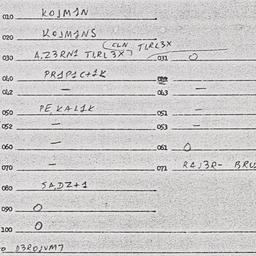 010 KOJM1N
020 KOJM1NS
030 A.Z3RN1 TLRL3X (CLN TLRL3X 031 O
040 PR1P1C+1K
042 — 043 —
050 PE,KAL1K 051 —
052 — 053 —
060 — 061 O
070 — 071 RAJ3R- BRU
080 SA,DZ+1
090 O
100 O
D3ROJVM7